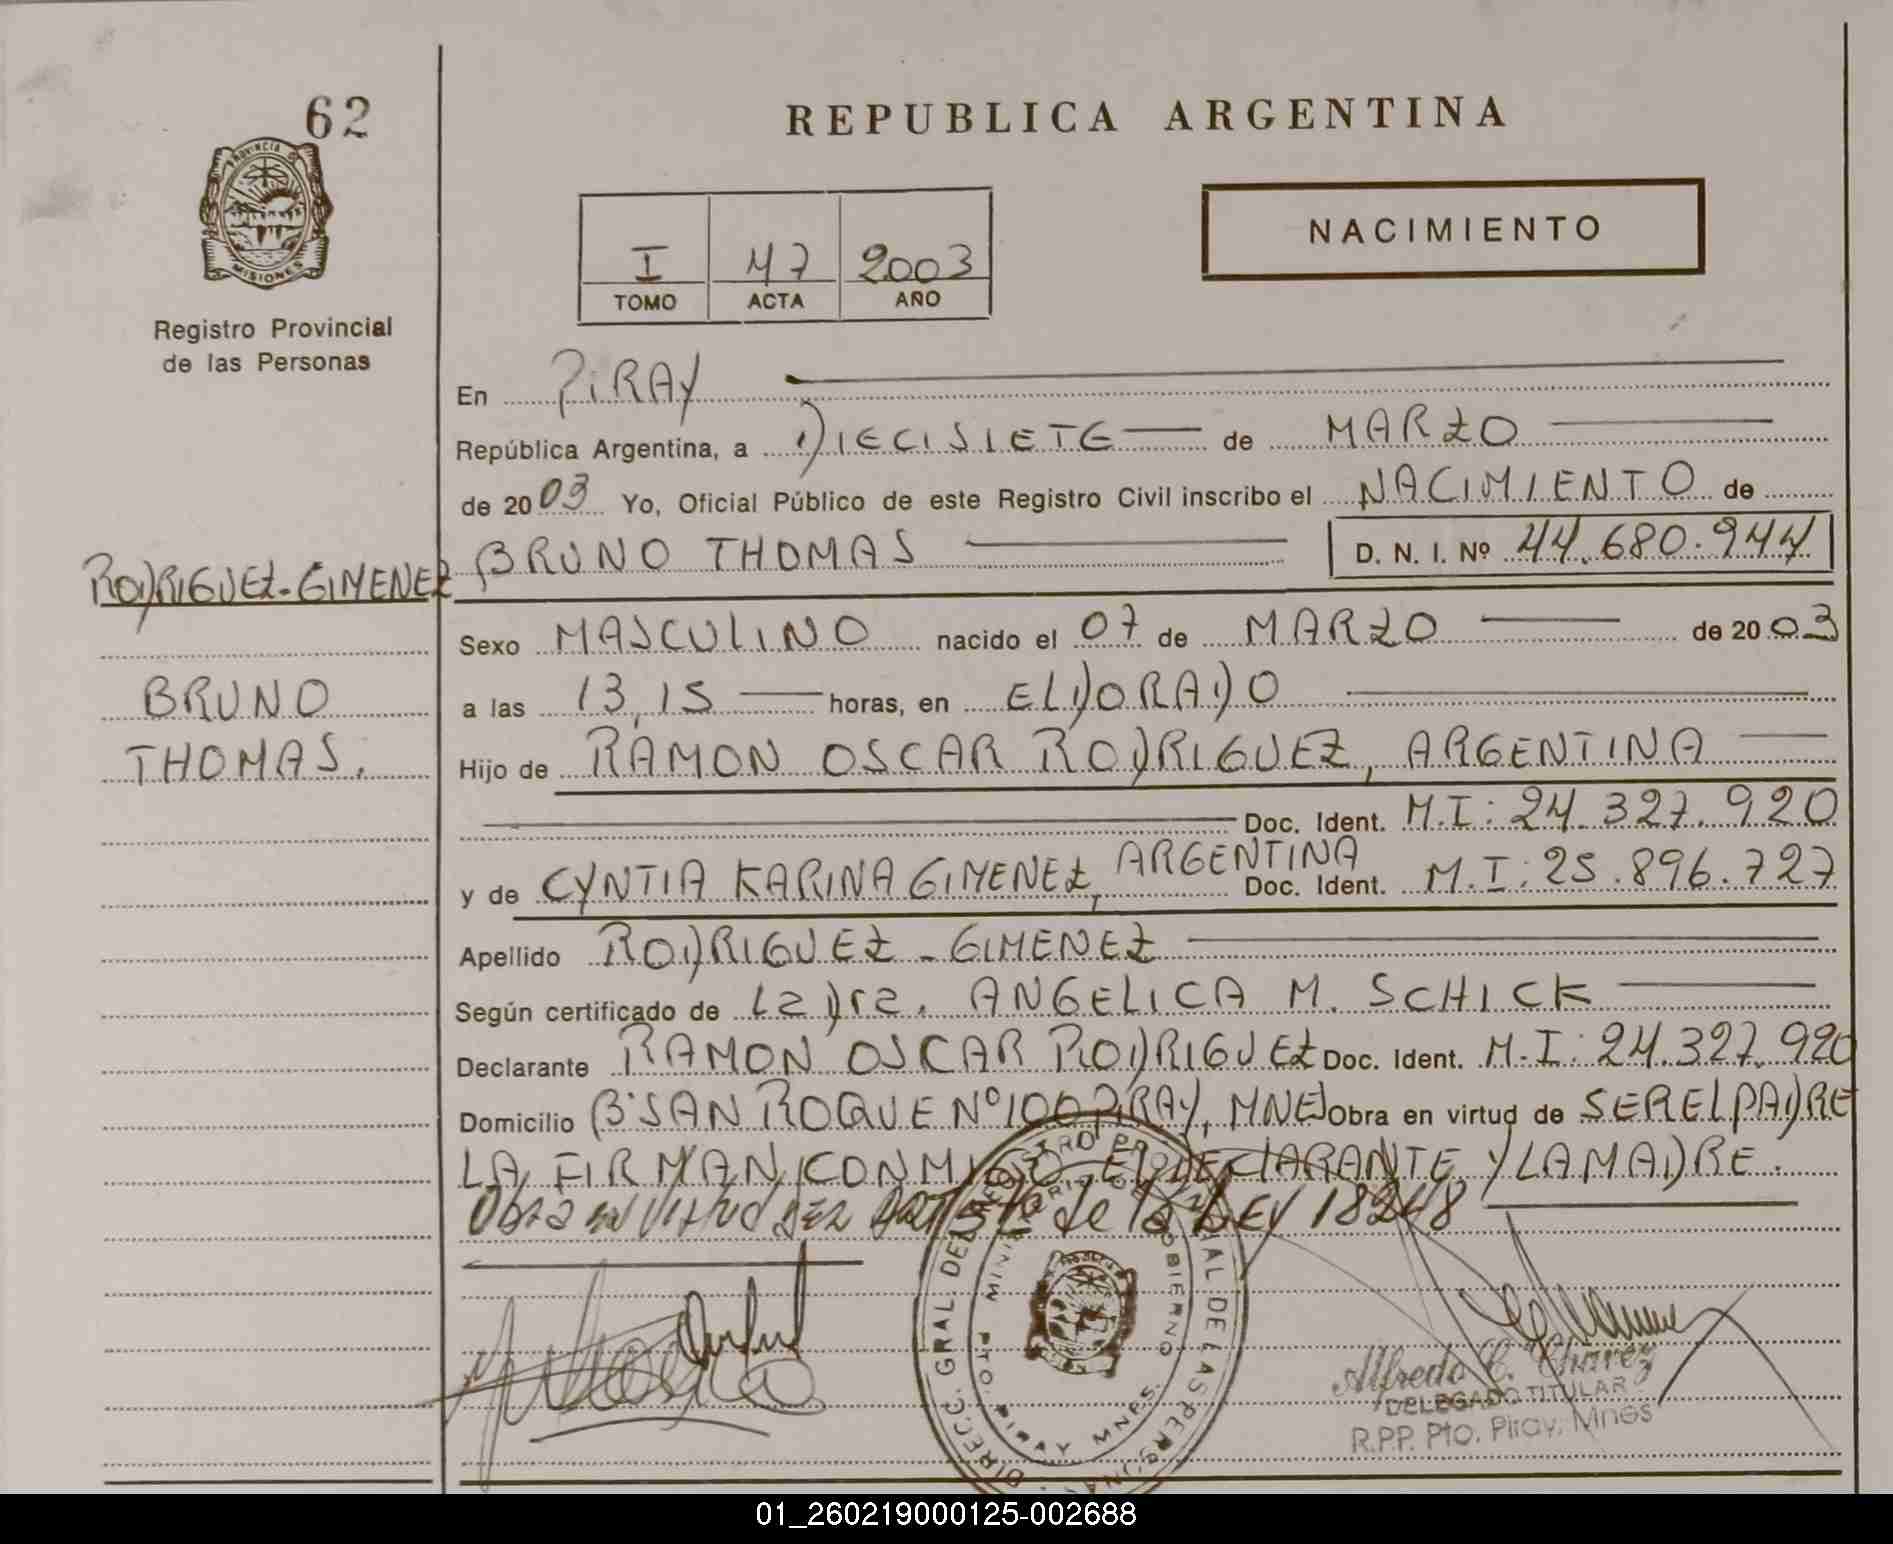 62
PROVINCIA DE
MISIONES
Registro Provincial
de las Personas
REPUBLICA ARGENTINA
I 47 2003
TOMO ACTA AÑO
NACIMIENTO
En PIRAY
República Argentina, a DIECISIETE de MARZO
de 2003 Yo, Oficial Público de este Registro Civil inscribo el NACIMIENTO de
RODRIGUEZ-GIMENEZ BRUNO THOMAS D. N. I. Nº 44.680.944
Sexo MASCULINO nacido el 07 de MARZO de 2003
BRUNO a las 13,15 horas, en ELDORADO
THOMAS. Hijo de RAMON OSCAR RODRIGUEZ, ARGENTINA
Doc. Ident. M.I: 24.327.920
y de CYNTIA KARINA GIMENEZ, ARGENTINA Doc. Ident. M.I: 25.896.727
Apellido RODRIGUEZ - GIMENEZ
Según certificado de La Dra. ANGELICA M. SCHICK
Declarante RAMON OSCAR RODRIGUEZ Doc. Ident. M.I: 24.327.920
Domicilio Bº SAN ROQUE Nº 100 PIRAY, MNES Obra en virtud de SER EL PADRE
LA FIRMAN CONMIGO EL DECLARANTE Y LA MADRE.
Obra en virtud del ART de la LEY 18248
DIRECC. GRAL. DEL REGISTRO PROVINCIAL DE LAS PERSONAS
MINISTERIO DE GOBIERNO
PTO. PIRAY MNES.
Alfredo C.
DELEGADO TITULAR
R.P.P. Pto. Piray, Mnes
01_260219000125-002688